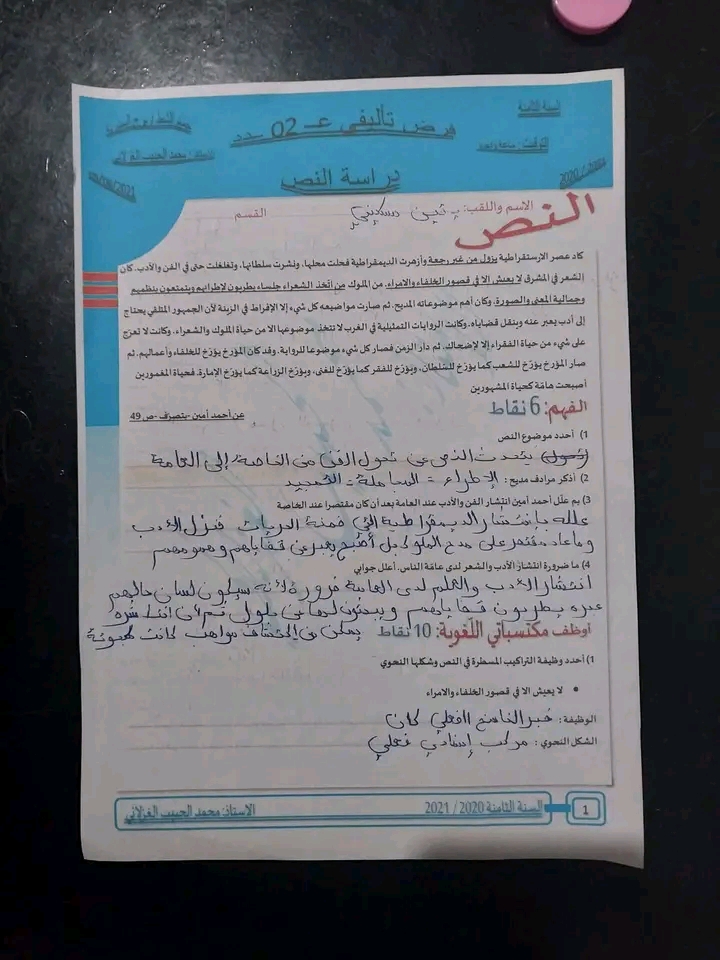 السنة الثامنة
فرض تأليفي عـ 02 ـدد
التوقيت: ساعة واحدة
الأستاذ: محمد الحبيب الغزلاني
دراسة النص
2020/2021
النص
الاسم واللقب:
القسم
كاد عصر الارستقراطية يزول من غير رجعة وأزهرت الديمقراطية فحلت محلها. ونشرت سلطانها. وتغلغلت حتى في الفن والأدب. كان
الشعر في المشرق لا يعيش الا في قصور الخلفاء والامراء. من الملوك من اتّخذ الشعراء جلساء يطربون لإطرائهم ويتمتعون بنظمهم
وجمالية المعنى والصورة. وكان أهم موضوعاته المديح. ثم صارت مواضيعه كل شيء إلا الإفراط في الزينة لأن الجمهور المتلقي يحتاج
إلى أدب يعبر عنه وينقل قضاياه. وكانت الروايات التمثيلية في الغرب لا تتخذ موضوعها الا من حياة الملوك والشعراء. وكانت لا تعرج
على شيء من حياة الفقراء إلا لإضحاك. ثم دار الزمن فصار كل شيء موضوعا للرواية. وقد كان المؤرخ يؤرّخ للخلفاء وأعمالهم. ثم
صار المؤرخ يؤرّخ للشعب كما يؤرخ للسّلطان. ويؤرّخ للفقر كما يؤرّخ للغنى. ويؤرّخ الزراعة كما يؤرّخ الإمارة. فحياة المغمورين
أصبحت هامّة كحياة المشهورين
عن أحمد أمين -بتصرف- ص 49
الفهم: 6 نقاط
1) أحدد موضوع النص
يتحدث النص عن تحول الفن من الخاصة إلى العامة
2) أذكر مرادف مديح: الإطراء = المجاملة = التمجيد
3) بم علّل أحمد أمين انتشار الفن والأدب عند العامة بعد أن كان مقتصرا عند الخاصة
علله بانتشار الديمقراطية التي ضمنة الحريات فنزل الأدب
وما عاد مقتصر على مدح الملوك بل أصبح يعبر عن قضاياهم وهمومهم
4) ما ضرورة انتشار الأدب والشعر لدى عامّة الناس. أعلل جوابي
انتشار الأدب والعلم لدى العامة ضرورة لأنه سيكون لسان حالهم
عبره يطرحون قضاياهم ويبحثون لها عن حلول ثم أن انتشاره
يمكن من اكتشاف مواهب كانت
أوظف مكتسباتي اللّغوية: 10 نقاط
1) أحدد وظيفة التراكيب المسطرة في النص وشكلها النحوي
• لا يعيش الا في قصور الخلفاء والامراء
الوظيفة: خبر الناسخ الفعلي كان
الشكل النحوي: مركب إسنادي فعلي
الأستاذ: محمد الحبيب الغزلاني
السنة الثامنة 2020 / 2021
1